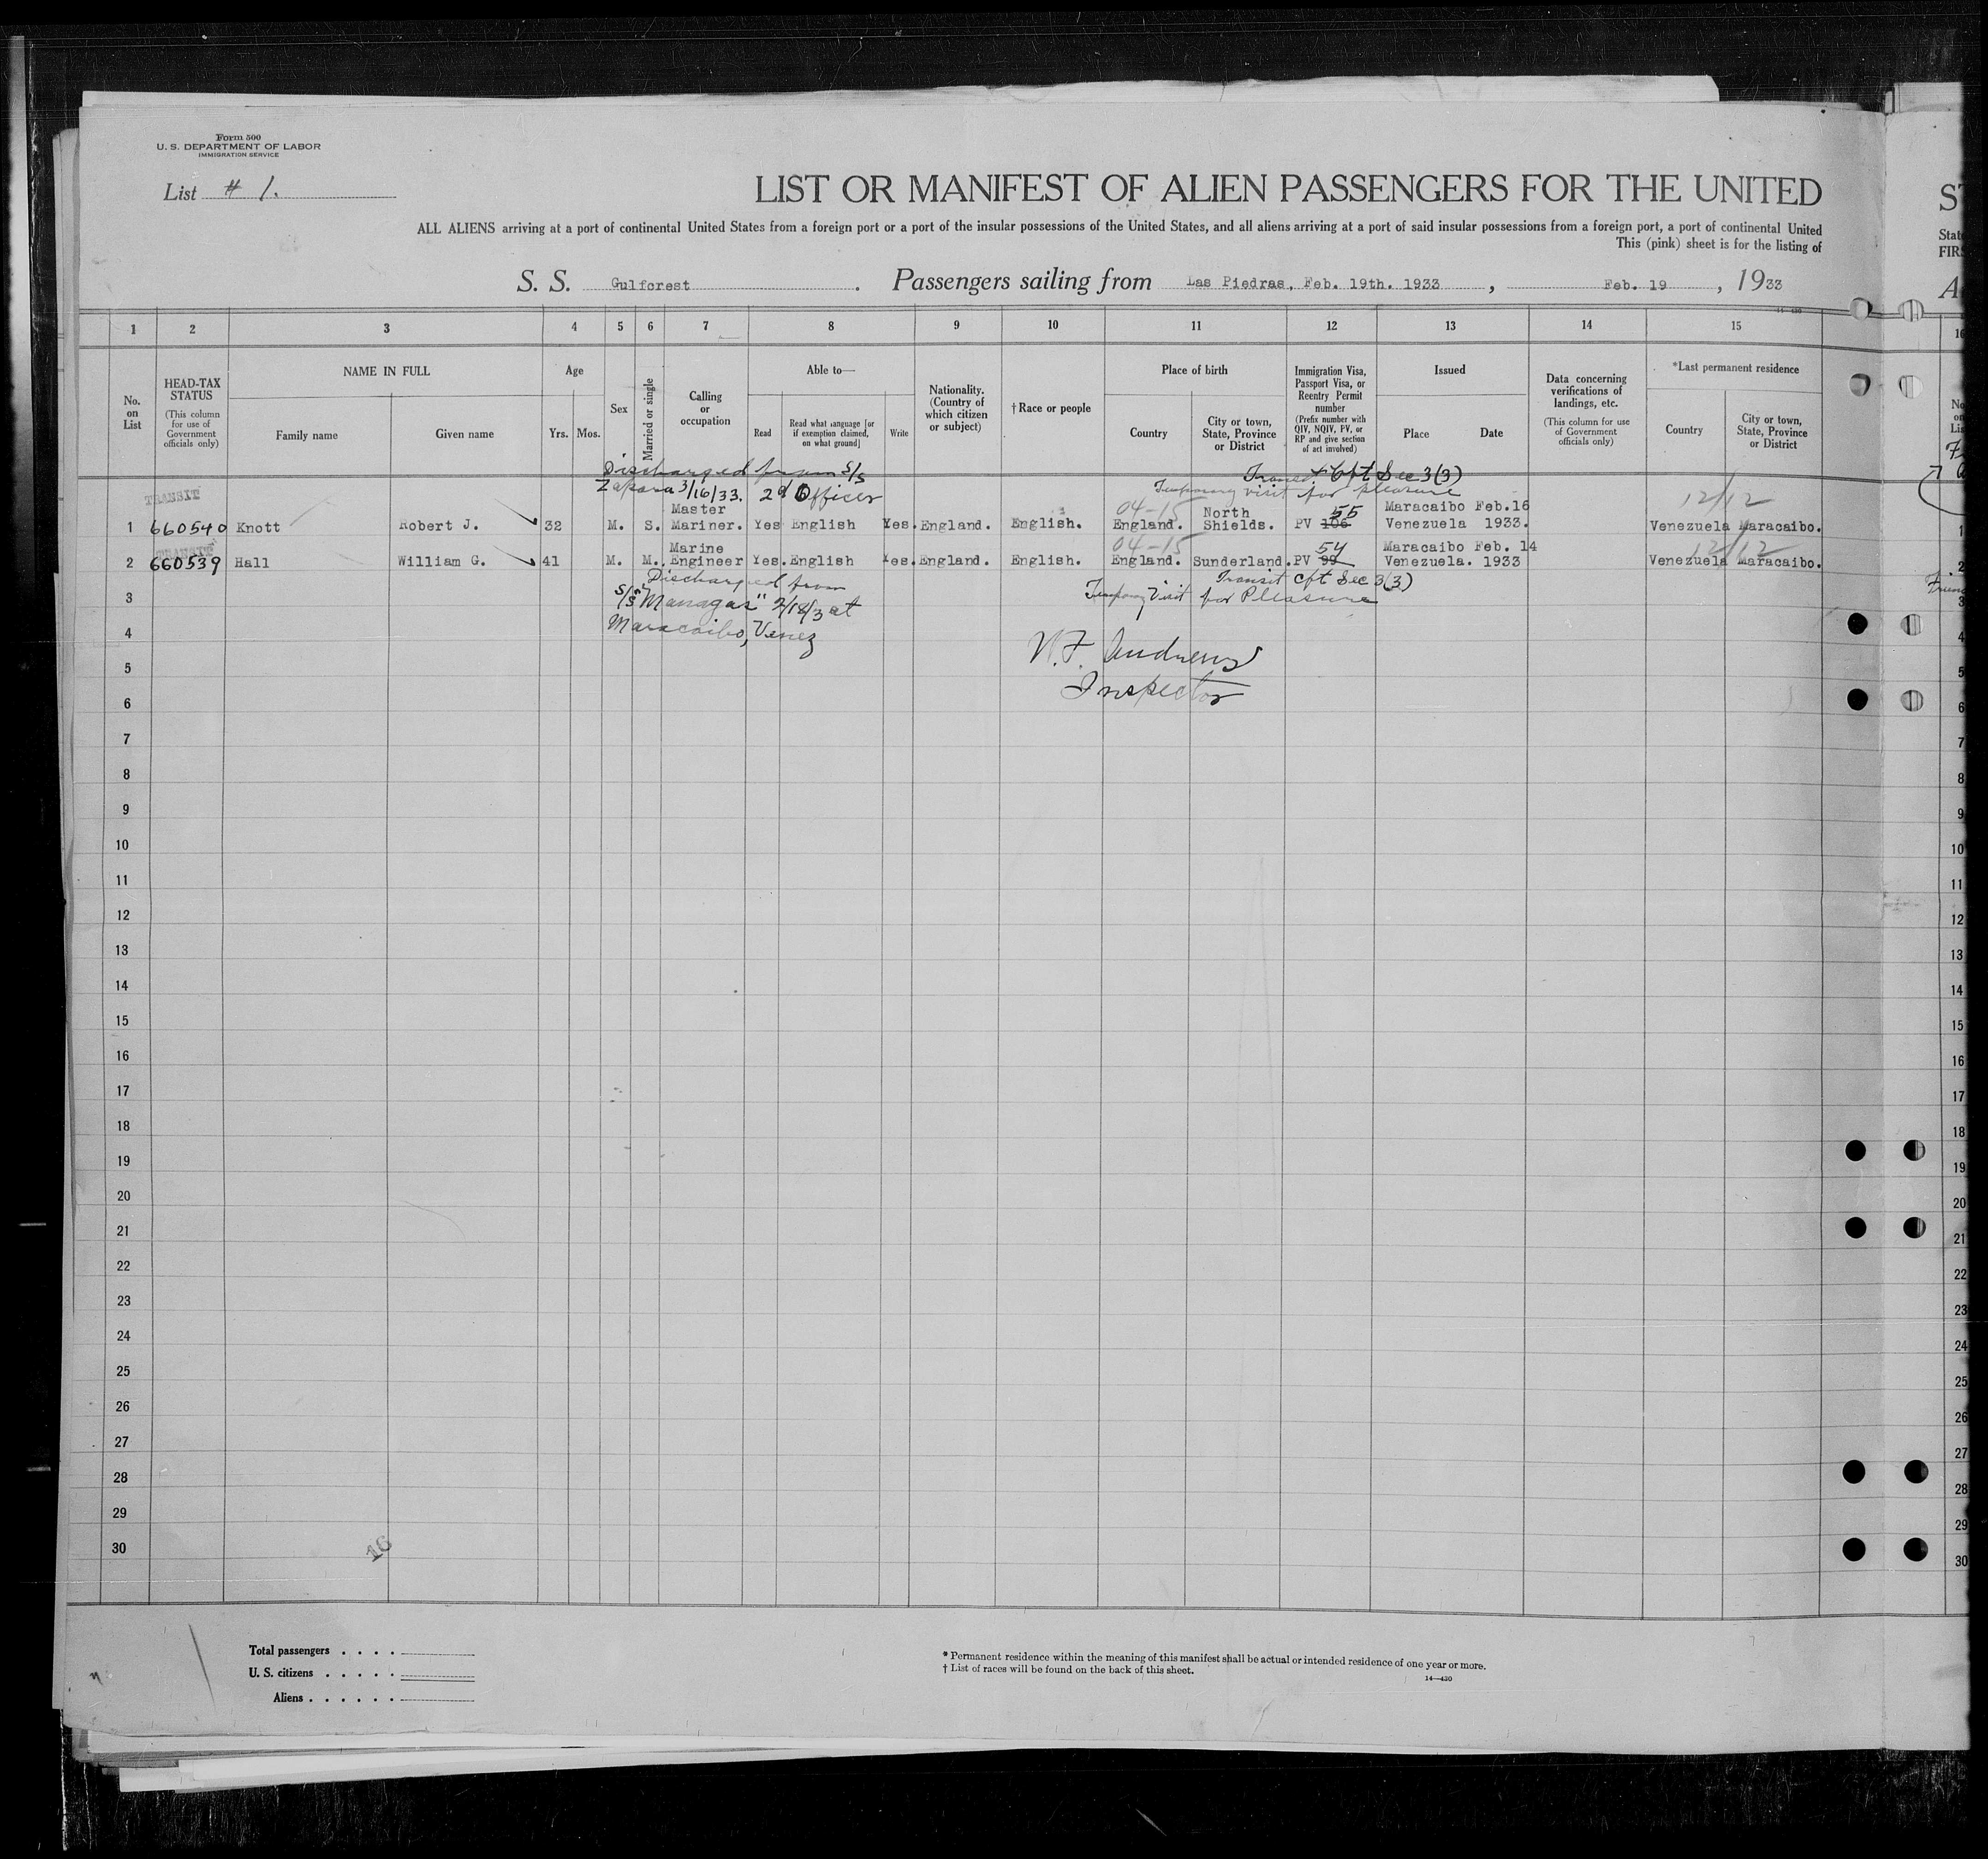 Form 500
U. S. DEPARTMENT OF LABOR
IMMIGRATION SERVICE
List # 1.
LIST OR MANIFEST OF ALIEN PASSENGERS FOR THE UNITED
ALL ALIENS arriving at a port of continental United States from a foreign port or a port of the insular possessions of the United States, and all aliens arriving at a port of said insular possessions from a foreign port, a port of continental United
This (pink) sheet is for the listing of
S. S. Gulfcrest . Passengers sailing from Las Piedras, Feb. 19th. 1933 , Feb. 19 , 1933
14—430
1 2 3 4 5 6 7 8 9 10 11 12 13 14 15
No. on List
HEAD-TAX STATUS
(This column for use of Government officials only)
NAME IN FULL
Family name
Given name
Age
Yrs. Mos.
Sex
Married or single
Calling or occupation
Able to—
Read
Read what language [or if exemption claimed, on what ground]
Write
Nationality. (Country of which citizen or subject)
† Race or people
Place of birth
Country
City or town, State, Province or District
Immigration Visa, Passport Visa, or Reentry Permit number
(Prefix number with QIV, NQIV, PV, or RP and give section of act involved)
Issued
Place
Date
Data concerning verifications of landings, etc.
(This column for use of Government officials only)
*Last permanent residence
Country
City or town, State, Province or District
Discharged from S/S
Zapara 3/16/33. 2d Officer
Transit Cft Sec 3(3)
Temporary visit for pleasure
TRANSIT
04-15
12/12
1 660540 Knott Robert J. 32 M. S. Master Mariner. Yes English Yes. England. English. England. North Shields. PV 106 55 Maracaibo Venezuela Feb.16 1933. Venezuela Maracaibo.
TRANSIT
04-15
12/12
2 660539 Hall William G. 41 M. M. Marine Engineer Yes. English Yes. England. English. England. Sunderland. PV 99 54 Maracaibo Venezuela. Feb. 14 1933 Venezuela Maracaibo.
Discharged from
S/S "Managas" 2/18/3 at
Maracaibo, Venez
Transit Cft Sec 3(3)
Temporary Visit for Pleasure
W. F. Andrews
Inspector
3
4
5
6
7
8
9
10
11
12
13
14
15
16
17
18
19
20
21
22
23
24
25
26
27
28
29
30
16
Total passengers
U. S. citizens
Aliens
* Permanent residence within the meaning of this manifest shall be actual or intended residence of one year or more.
† List of races will be found on the back of this sheet.
14—430